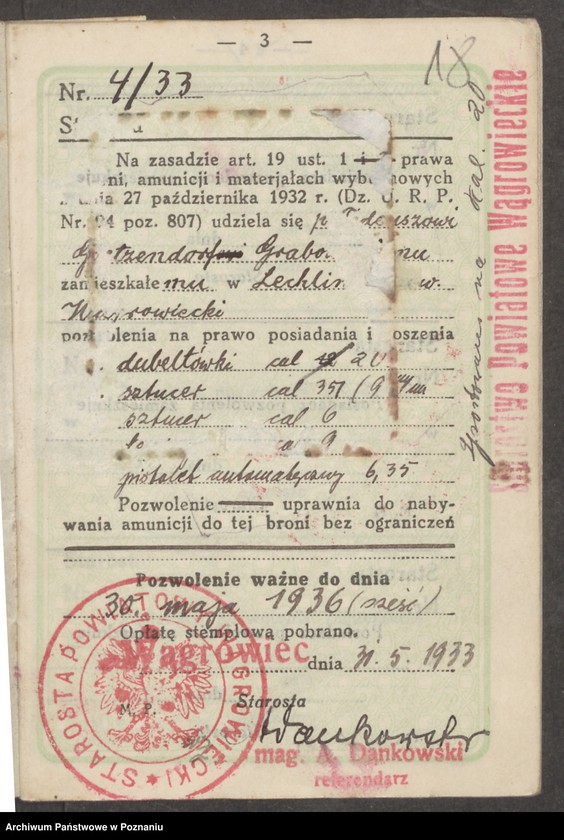 — 3 —
18
Nr. 4/33
Na zasadzie art. 19 ust. 1 prawa
amunicji i materjałach
27 października 1932 r. (Dz. U. R. P.
Nr. 94 poz. 807) udziela się p.
zamieszkałemu w
Wągrowiecki
pozwolenia na prawo posiadania i noszenia
dubeltówki cal 20
sztucer cal 351 (9 m/m
sztucer cal 6
9
pistolet automatyczny 6,35
Pozwolenie uprawnia do naby-
wania amunicji do tej broni bez ograniczeń
Pozwolenie ważne do dnia
30. maja 1936 (sześć)
Opłatę stemplową pobrano.
Wągrowiec dnia 31. 5. 1933
Starosta
M. P.
Dankowski
mag. A. Dankowski
referendarz
STAROSTA POWIATOWY WĄGROWIECKI
Sprostowano na kal. 20
Starostwo Powiatowe Wągrowieckie
Archiwum Państwowe w Poznaniu